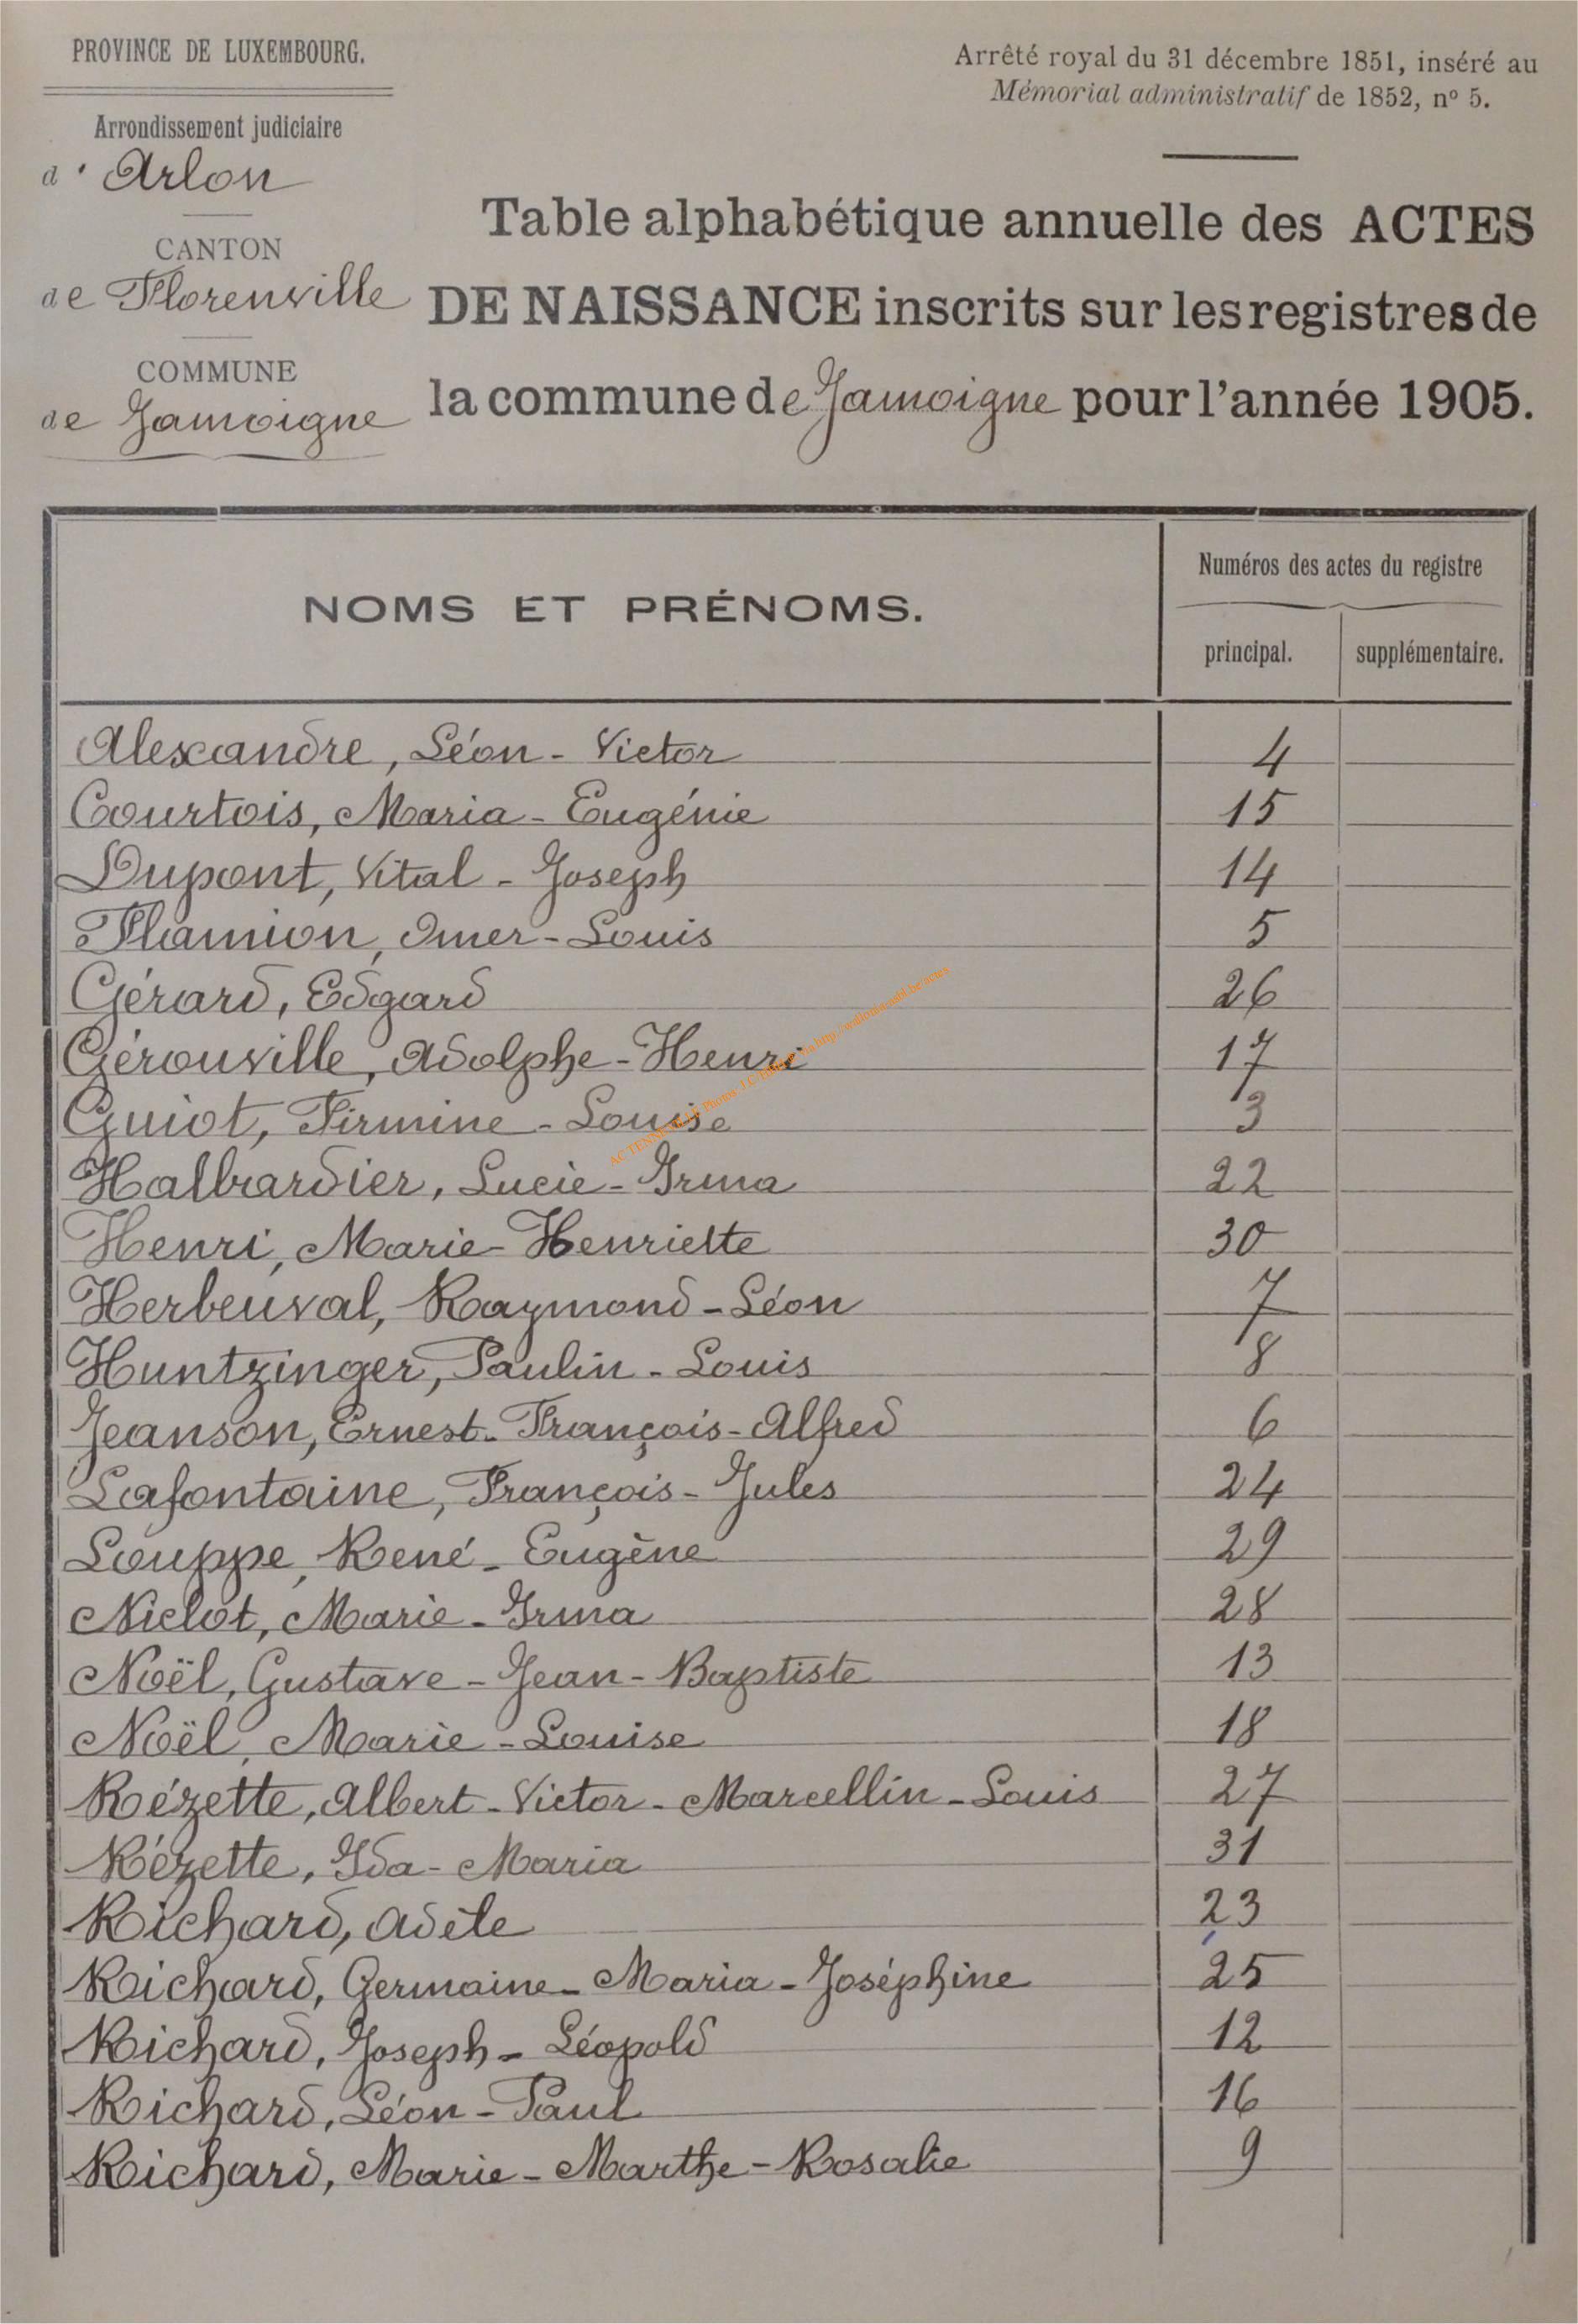 PROVINCE DE LUXEMBOURG.
Arrondissement judiciaire
d'Arlon
CANTON
de Florenville
COMMUNE
de Jamoigne
Arrêté royal du 31 décembre 1851, inséré au
Mémorial administratif de 1852, nº 5.
Table alphabétique annuelle des ACTES
DE NAISSANCE inscrits sur les registres de
la commune de Jamoigne pour l'année 1905.
NOMS ET PRÉNOMS.
Numéros des actes du registre
principal. supplémentaire.
Alexandre, Léon-Victor 4
Courtois, Maria-Eugénie 15
Dupont, Vital-Joseph 14
Flamion, Omer-Louis 5
Gérard, Edgard 26
Gérouville, Adolphe-Henri 17
Guiot, Firmine-Louise 3
Halbardier, Lucie-Irma 22
Henri, Marie-Henriette 30
Herbeuval, Raymond-Léon 7
Huntzinger, Paulin-Louis 8
Jeanson, Ernest-François-Alfred 6
Lafontaine, François-Jules 24
Louppe, René-Eugène 29
Niclot, Marie-Irma 28
Noël, Gustave-Jean-Baptiste 13
Noël, Marie-Louise 18
Rézette, Albert-Victor-Marcellin-Louis 27
Rézette, Ida-Maria 31
Richard, Adèle 23
Richard, Germaine-Maria-Joséphine 25
Richard, Joseph-Léopold 12
Richard, Léon-Paul 16
Richard, Marie-Marthe-Rosalie 9